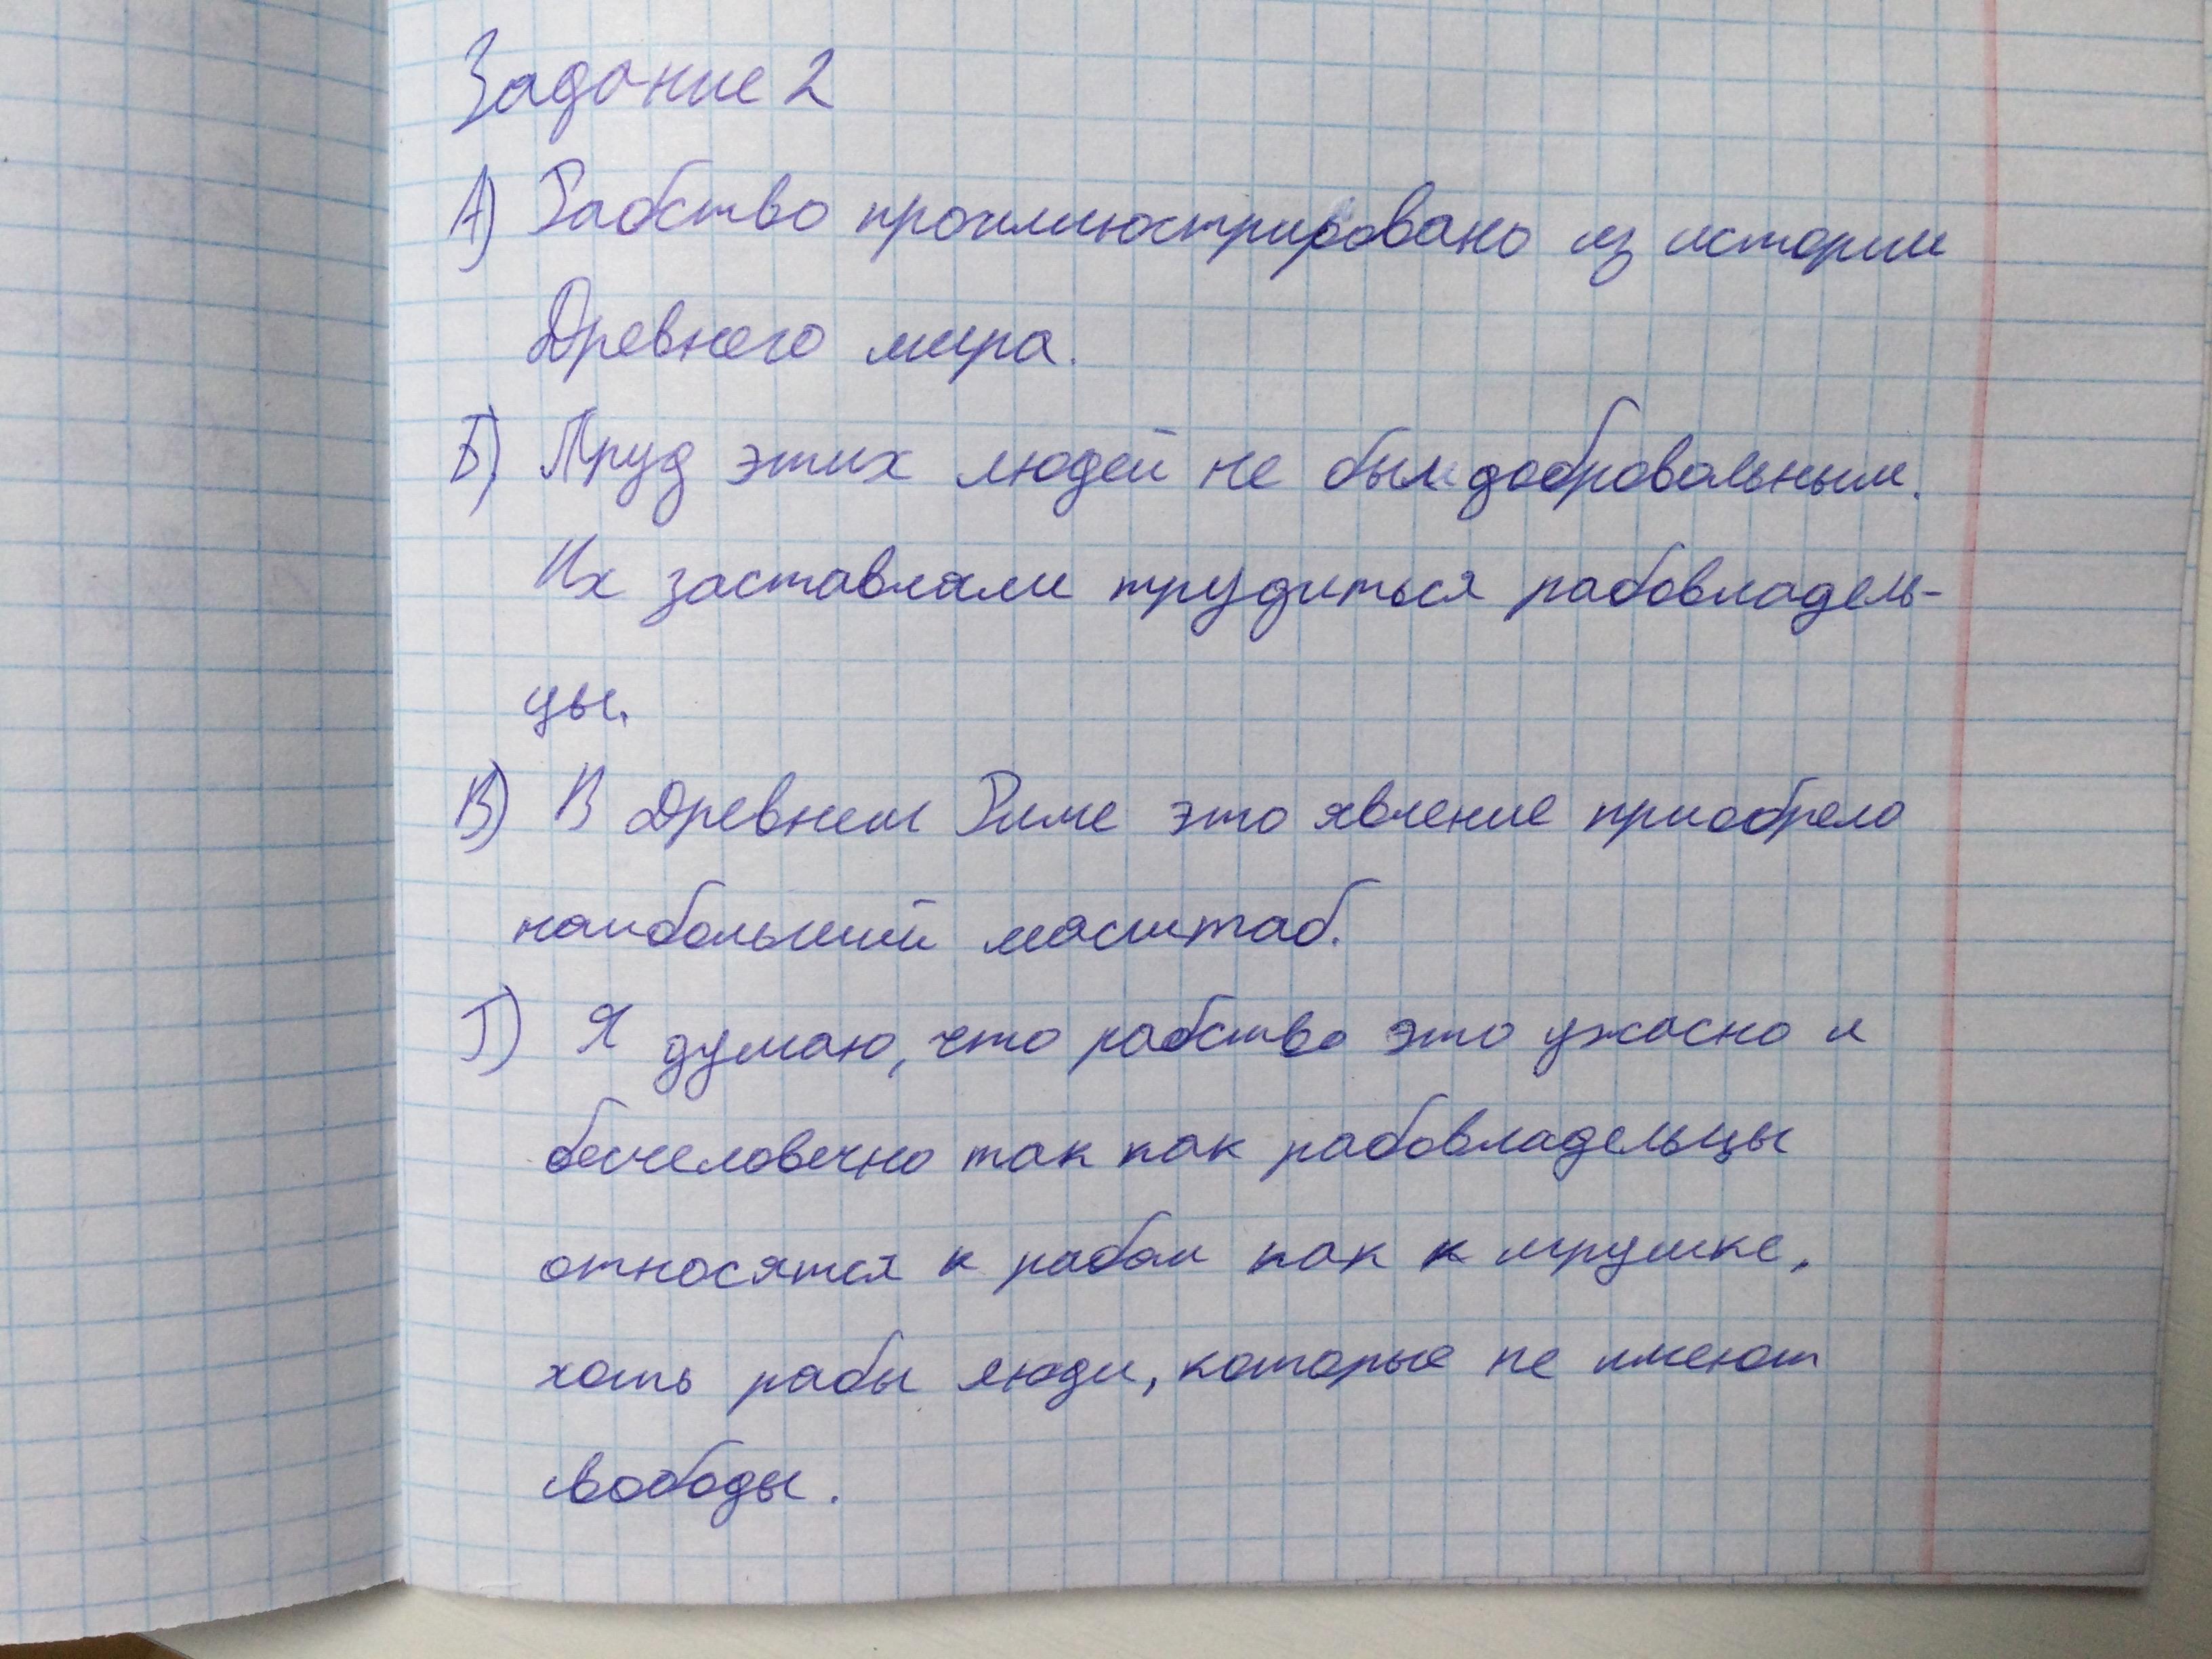 Задание 2
А) Рабство проиллюстрировано из истории
Древнего мира.
Б) Труд этих людей не был добровольным.
Их заставляли трудиться рабовладель-
цы.
В) В Древнем Риме это явление приобрело
наибольший масштаб.
Г) Я думаю, что рабство это ужасно и
бесчеловечно так как рабовладельцы
относятся к рабам как к игрушке,
хоть рабы люди, которые не имеют
свободы.